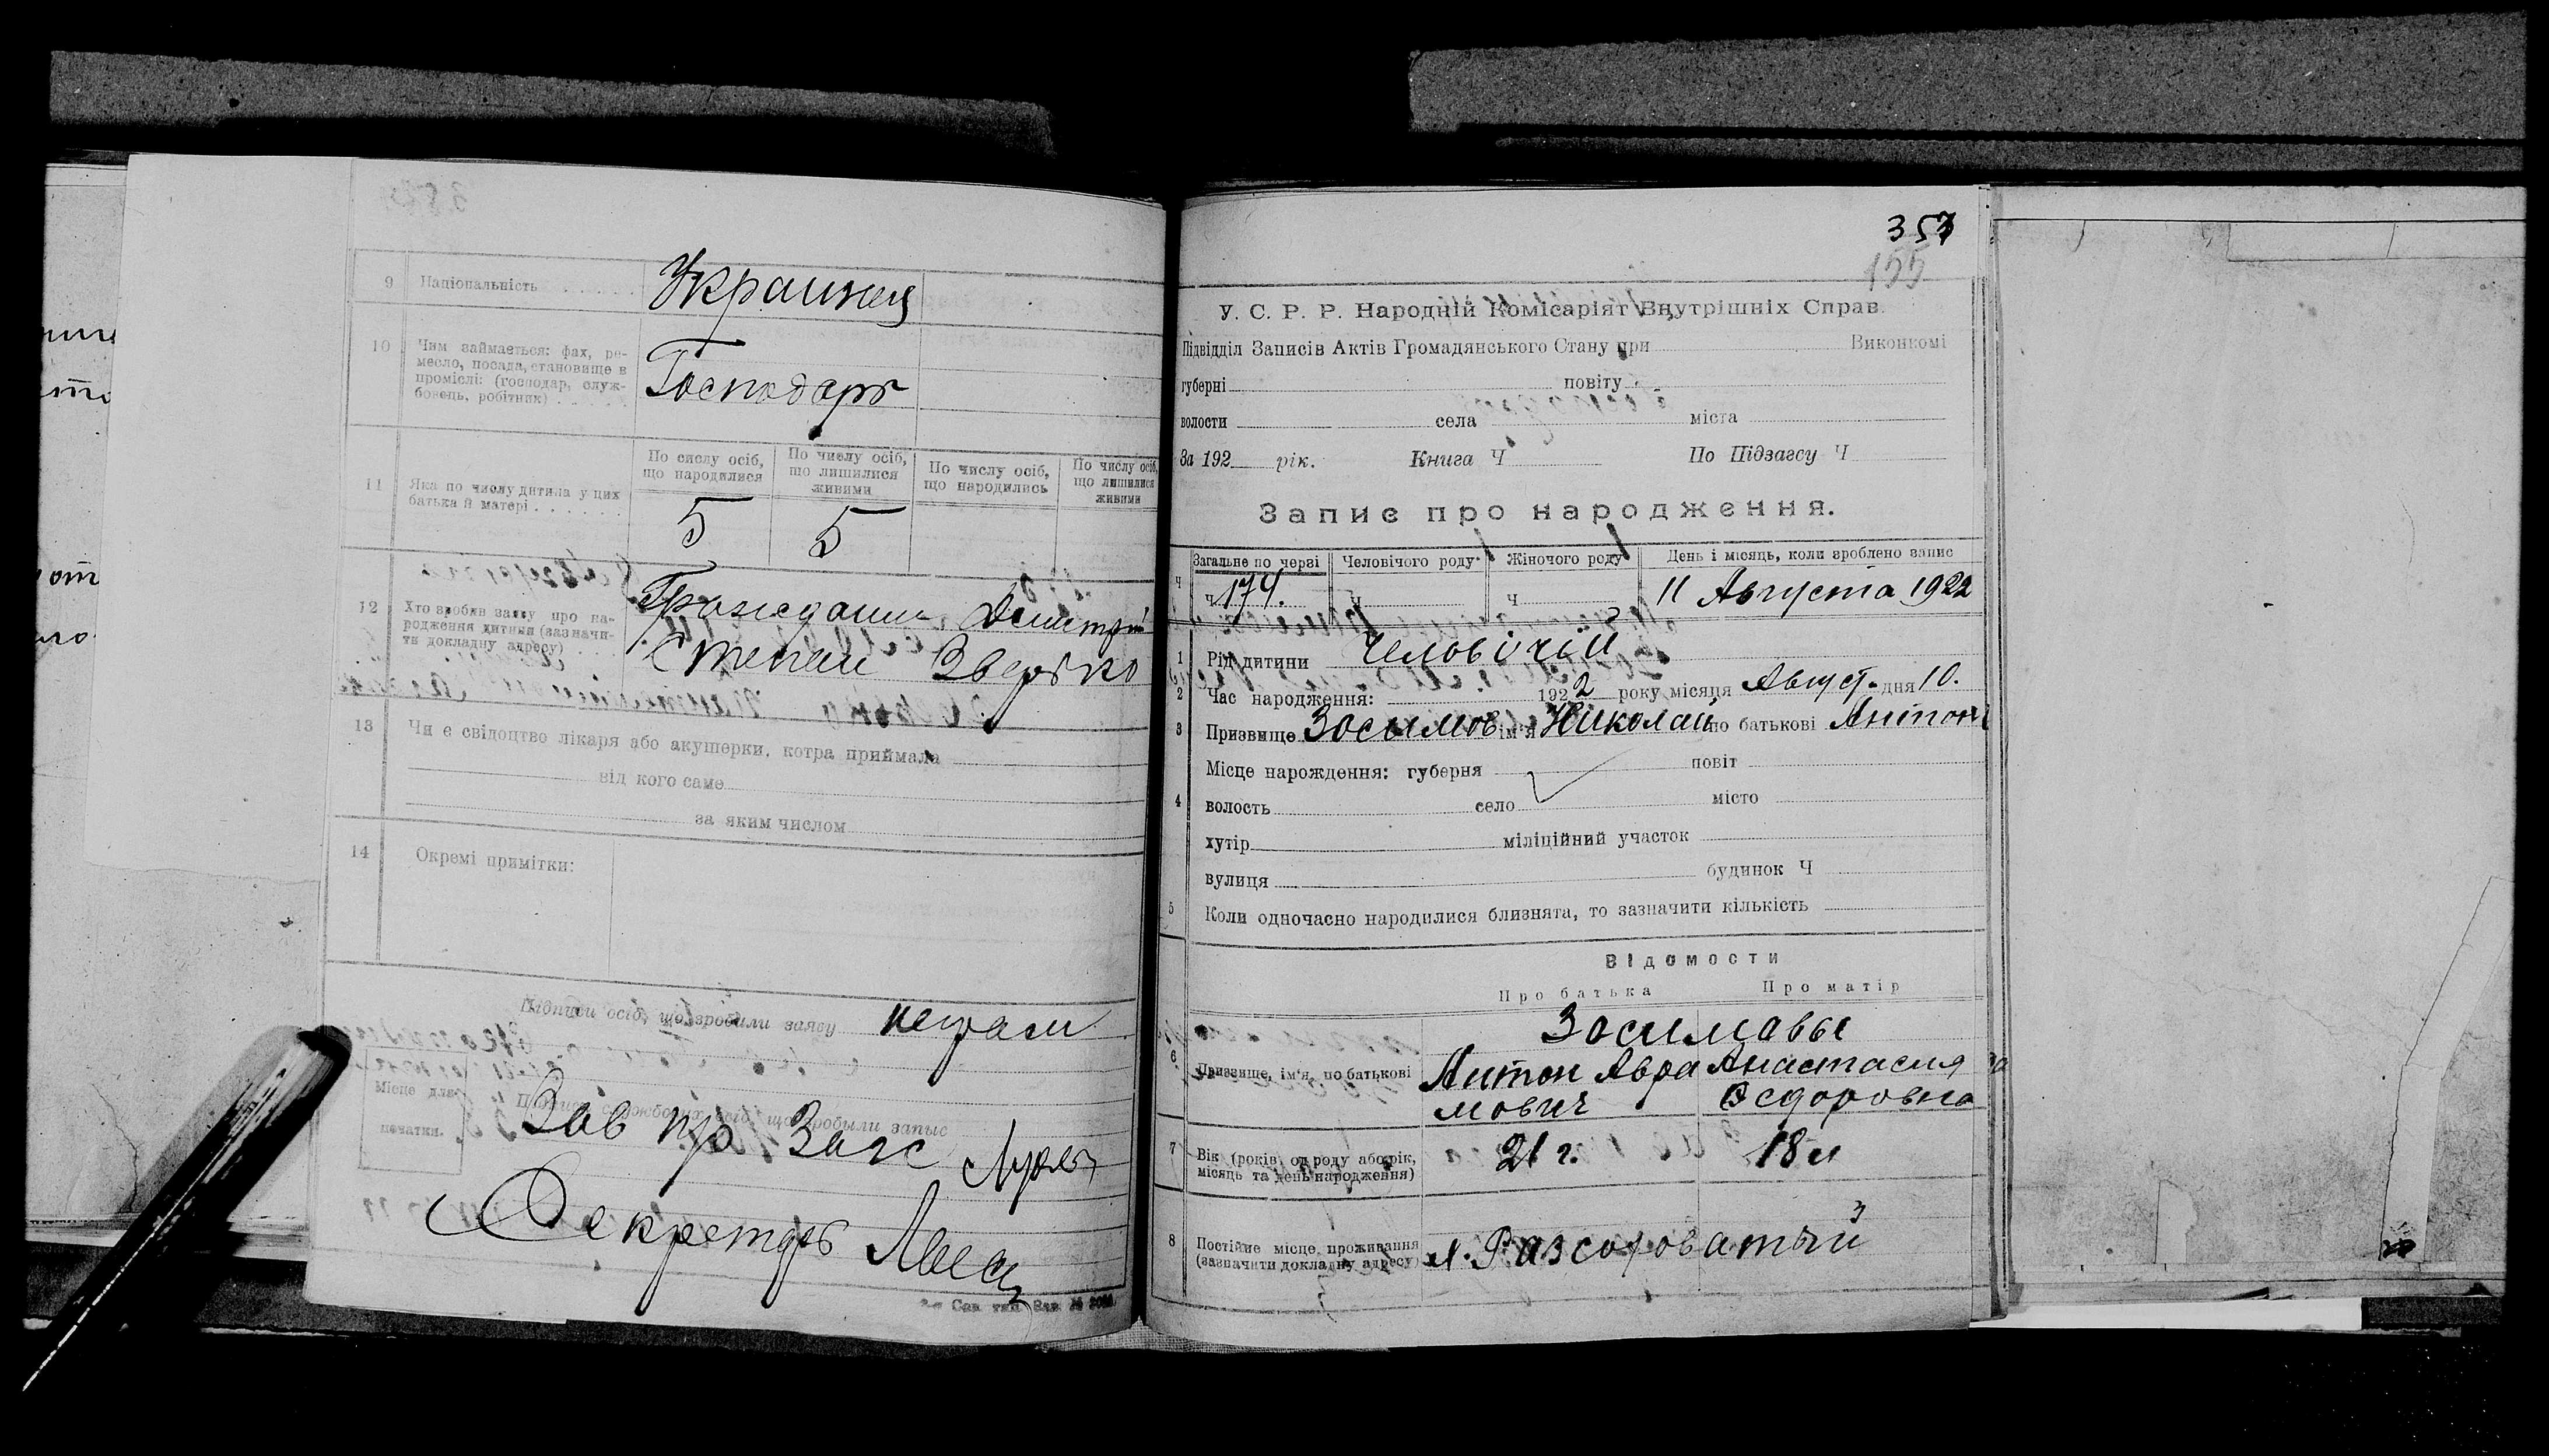 9 Національність Украинец
10 Чим займається: фах, ре-
месло, посада, становище в
проміслі: (господар, служ-
бовець, робітник)
Господарь
11 Яка по числу дитина у цих
батька й матері
По числу осіб,
що народилися
По числу осіб,
що лишилися
живими
По числу осіб,
що народились
По числу осіб,
що лишилися
живими
5 5
12 Хто зробив заяву про на-
родження дитини (зазначи-
ти докладну адресу)
Гражданин Дмитрий
Степан Зверько
13 Чи є свідоцтво лікаря або акушерки, котра приймала
від кого саме
за яким числом
14 Окремі примітки:
Підписи осіб, що зробили заяву неграм
Місце для
печатки.
Зав пр Загс
Секретарь
357
155
У. С. Р. Р. Народній Комісаріят Внутрішніх Справ.
Підвідділ Записів Актів Громадянського Стану при Виконкомі
губерні повіту
волости села міста
За 192 рік. Книга Ч По Підзагсу Ч
Запис про народження.
Загальне по черзі Человічого роду Жіночого роду День і місяць, коли зроблено запис
Ч 174. Ч Ч 11 Августа 1922
1 Рід дитини Человічій
2 Час народження: 1922 року місяця Август. дня 10.
3 Призвище Зосимов ім'я Николай по батькові Антон
Місце нарождення: губерня повіт
4 волость село місто
хутір міліційний участок
вулиця будинок Ч
5 Коли одночасно народилися близнята, то зазначити кількість
Відомости
Про батька Про матір
Зосимовы
6 Призвище, ім'я, по батькові Антон Авра Анастасия
мович Ѳедоровна
7 Вік (років од роду або рік,
місяць та день народження)
21 г. 18 л
8 Постійне місце проживання
(зазначити докладну адресу)
х. Разсоховатый